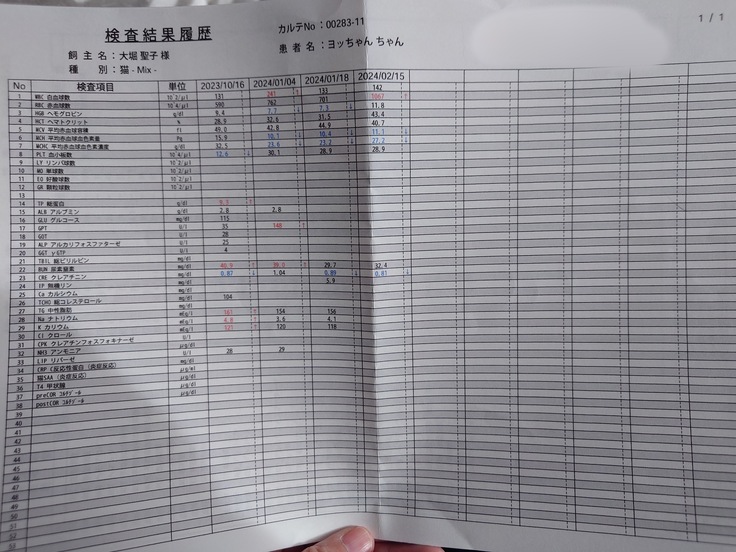 検査結果履歴
カルテNo：00283-11
1 / 1
飼 主 名：大堀 聖子 様
患 者 名：ヨッちゃん ちゃん
種　　別：猫 - Mix -
No 検査項目 単位 2023/10/16 2024/01/04 2024/01/18 2024/02/15
1 WBC 白血球数 10^2/μl 131 241 ↑ 133 142
2 RBC 赤血球数 10^4/μl 590 762 701 1067 ↑
3 HGB ヘモグロビン g/dl 9.4 7.7 ↓ 7.3 ↓ 11.8
4 HCT ヘマトクリット % 28.9 32.6 31.5 43.4
5 MCV 平均赤血球容積 fl 49.0 42.8 44.9 40.7
6 MCH 平均赤血球血色素量 Pg 15.9 10.1 ↓ 10.4 ↓ 11.1 ↓
7 MCHC 平均赤血球血色素濃度 g/dl 32.5 23.6 ↓ 23.2 ↓ 27.2 ↓
8 PLT 血小板数 10^4/μl 12.6 ↓ 30.1 28.9 28.9
9 LY リンパ球数 10^2/μl
10 MO 単球数 10^2/μl
11 EO 好酸球数 10^2/μl
12 GR 顆粒球数 10^2/μl
13
14 TP 総蛋白 g/dl ↑
15 ALB アルブミン g/dl 2.8 2.8
16 GLU グルコース mg/dl 115
17 GPT U/l 35 148 ↑
18 GOT U/l 28
19 ALP アルカリフォスファターゼ U/l 25
20 GGT γGTP U/l 4
21 TBIL 総ビリルビン mg/dl
22 BUN 尿素窒素 mg/dl 40.9 ↑ 39.0 ↑ 29.7 32.4
23 CRE クレアチニン mg/dl 0.87 ↓ 1.04 0.89 ↓ 0.81 ↓
24 IP 無機リン mg/dl 5.9
25 Ca カルシウム mg/dl
26 TCHO 総コレステロール mg/dl 104
27 TG 中性脂肪 mg/dl
28 Na ナトリウム mEq/l 161 ↑ 154 156
29 K カリウム mEq/l 4.8 ↑ 3.6 4.1
30 Cl クロール mEq/l 121 ↑ 120 118
31 CPK クレアチンフォスフォキナーゼ U/l
32 NH3 アンモニア
33 LIP リパーゼ U/l 28 29
34 CRP C反応性蛋白（炎症反応） mg/dl
35 猫SAA（炎症反応） μg/ml
36 T4 甲状腺 μg/dl
37 preCOR コルチゾール μg/dl
38 postCOR コルチゾール μg/dl
39
40
41
42
43
44
45
46
47
48
49
50
51
52
53